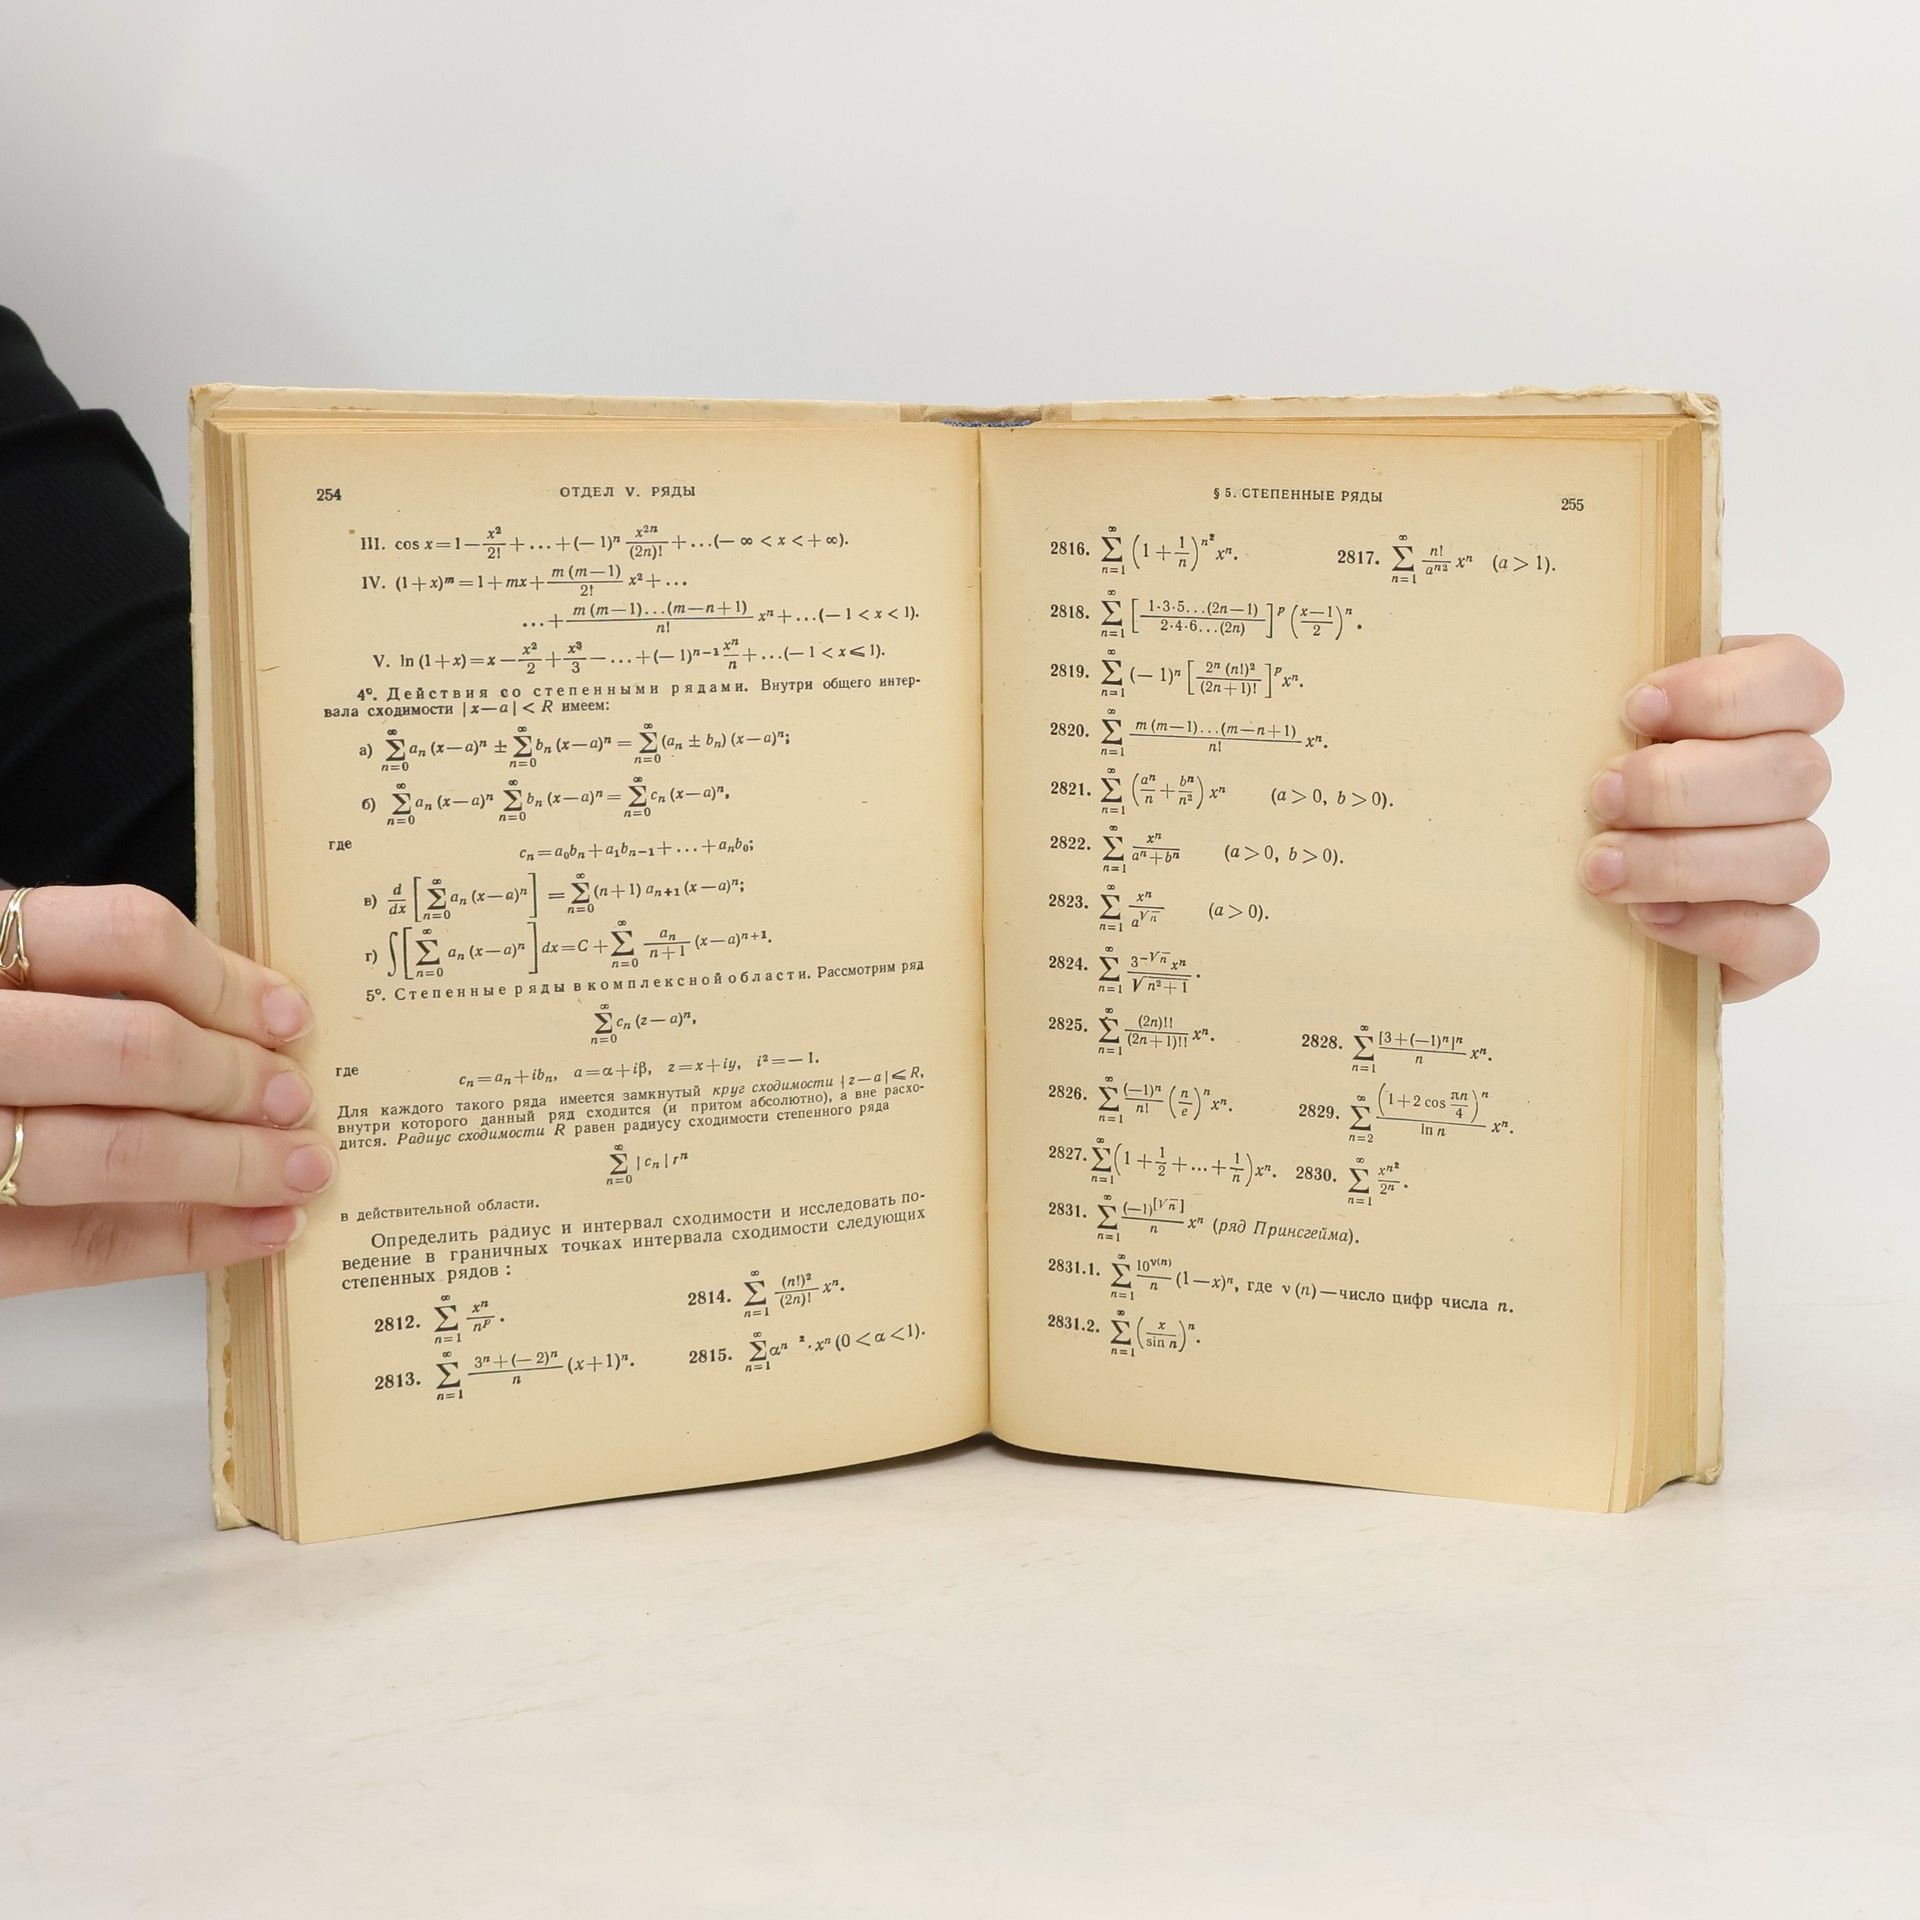 254 ОТДЕЛ V. РЯДЫ
III. cos x = 1 − x²/2! + ... + (−1)ⁿ x²ⁿ/(2n)! + ... (− ∞ < x < + ∞).
IV. (1 + x)ᵐ = 1 + mx + m (m − 1)/2! x² + ...
... + m (m − 1)...(m − n + 1)/n! xⁿ + ... (− 1 < x < 1).
V. ln (1 + x) = x − x²/2 + x³/3 − ... + (− 1)ⁿ⁻¹ xⁿ/n + ... (− 1 < x ⩽ 1).
4°. Действия со степенными рядами. Внутри общего интер-
вала сходимости | x − a | < R имеем:
а) ∞ ∑ n=0 aₙ (x − a)ⁿ ± ∞ ∑ n=0 bₙ (x − a)ⁿ = ∞ ∑ n=0 (aₙ ± bₙ) (x − a)ⁿ;
б) ∞ ∑ n=0 aₙ (x − a)ⁿ ∞ ∑ n=0 bₙ (x − a)ⁿ = ∞ ∑ n=0 cₙ (x − a)ⁿ,
где
cₙ = a₀bₙ + a₁bₙ₋₁ + ... + aₙb₀;
в) d/dx [∞ ∑ n=0 aₙ (x − a)ⁿ] = ∞ ∑ n=0 (n + 1) aₙ₊₁ (x − a)ⁿ;
г) ∫ [∞ ∑ n=0 aₙ (x − a)ⁿ] dx = C + ∞ ∑ n=0 aₙ/(n + 1) (x − a)ⁿ⁺¹.
5°. Степенные ряды в комплексной области. Рассмотрим ряд
∞ ∑ n=0 cₙ (z − a)ⁿ,
где
cₙ = aₙ + ibₙ, a = α + iβ, z = x + iy, i² = − 1.
Для каждого такого ряда имеется замкнутый круг сходимости | z − a | ⩽ R,
внутри которого данный ряд сходится (и притом абсолютно), а вне расхо-
дится. Радиус сходимости R равен радиусу сходимости степенного ряда
∞ ∑ n=0 | cₙ | rⁿ
в действительной области.
Определить радиус и интервал сходимости и исследовать по-
ведение в граничных точках интервала сходимости следующих
степенных рядов :
2812. ∞ ∑ n=1 xⁿ/nᵖ.
2813. ∞ ∑ n=1 (3ⁿ + (− 2)ⁿ)/n (x + 1)ⁿ.
2814. ∞ ∑ n=1 (n!)²/(2n)! xⁿ.
2815. ∞ ∑ n=1 αⁿ ² · xⁿ (0 < α < 1).
§ 5. СТЕПЕННЫЕ РЯДЫ 255
2816. ∞ ∑ n=1 (1 + 1/n)^n² xⁿ. 2817. ∞ ∑ n=1 n!/a^n² xⁿ (a > 1).
2818. ∞ ∑ n=1 [1·3·5...(2n − 1)/2·4·6...(2n)]ᵖ ((x − 1)/2)ⁿ.
2819. ∞ ∑ n=1 (− 1)ⁿ [2ⁿ (n!)²/(2n + 1)!]ᵖ xⁿ.
2820. ∞ ∑ n=1 m (m − 1)...(m − n + 1)/n! xⁿ.
2821. ∞ ∑ n=1 (aⁿ/n + bⁿ/n²) xⁿ (a > 0, b > 0).
2822. ∞ ∑ n=1 xⁿ/(aⁿ + bⁿ) (a > 0, b > 0).
2823. ∞ ∑ n=1 xⁿ/a^√n (a > 0).
2824. ∞ ∑ n=1 3^(−√n) xⁿ/√(n² + 1).
2825. ∞ ∑ n=1 (2n)!!/(2n + 1)!! xⁿ.
2826. ∞ ∑ n=1 (−1)ⁿ/n! (n/e)ⁿ xⁿ.
2828. ∞ ∑ n=1 [3 + (−1)ⁿ]ⁿ/n xⁿ.
2829. ∞ ∑ n=2 (1 + 2 cos πn/4)ⁿ/ln n xⁿ.
2827. ∞ ∑ n=1 (1 + 1/2 + ... + 1/n) xⁿ. 2830. ∞ ∑ n=1 x^n²/2ⁿ.
2831. ∞ ∑ n=1 (−1)^[√n]/n xⁿ (ряд Принсгейма).
2831.1. ∞ ∑ n=1 10^ν(n)/n (1 − x)ⁿ, где ν (n) — число цифр числа n.
2831.2. ∞ ∑ n=1 (x/sin n)ⁿ.